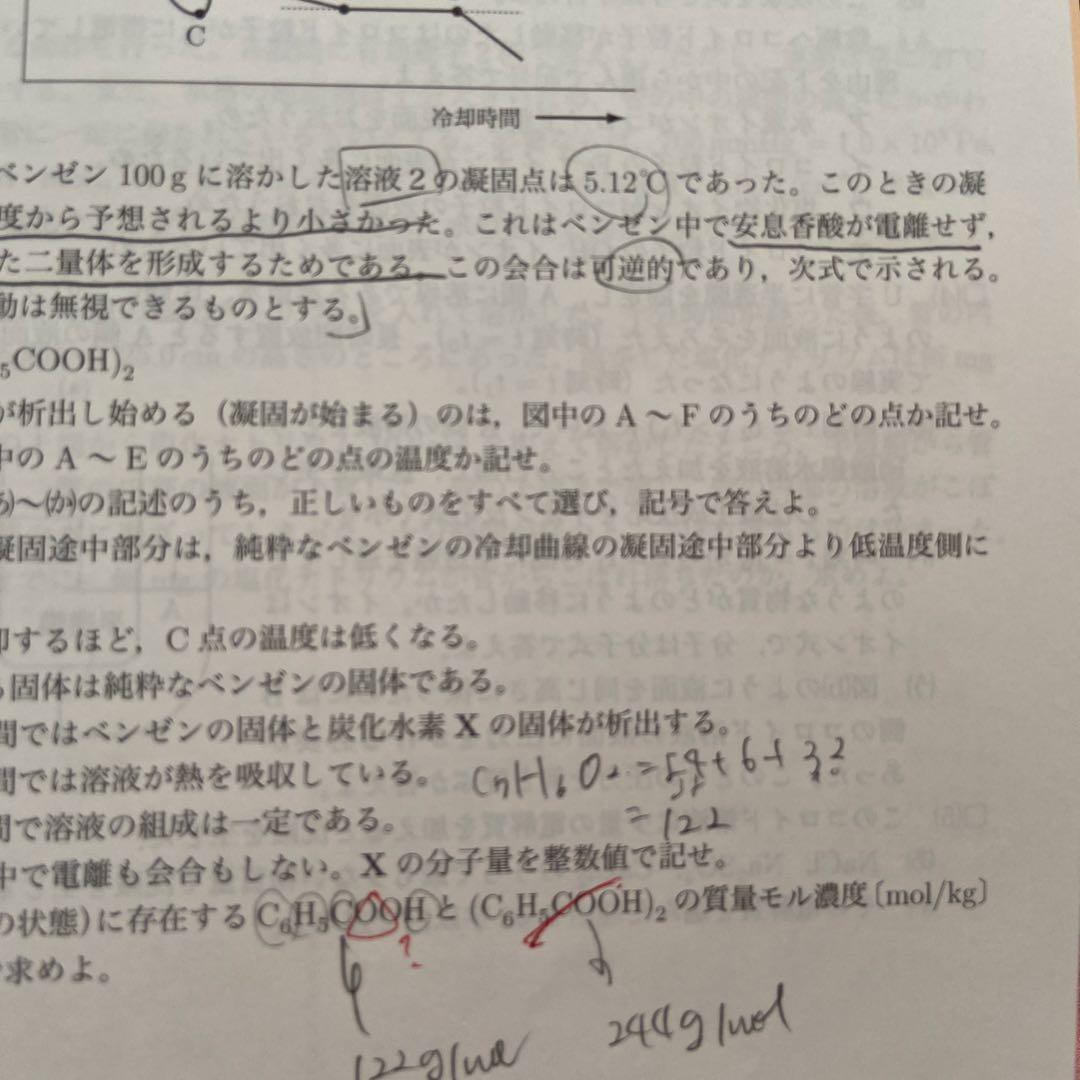 C
冷却時間
ベンゼン 100g に溶かした溶液2の凝固点は 5.12℃ であった。このときの凝
度から予想されるより小さかった。これはベンゼン中で安息香酸が電離せず,
た二量体を形成するためである。この会合は可逆的であり,次式で示される。
動は無視できるものとする。
5COOH)2
が析出し始める(凝固が始まる)のは,図中の A 〜 F のうちのどの点か記せ。
中の A 〜 E のうちのどの点の温度か記せ。
あ)〜(か)の記述のうち,正しいものをすべて選び,記号で答えよ。
凝固途中部分は,純粋なベンゼンの冷却曲線の凝固途中部分より低温度側に
却するほど,C 点の温度は低くなる。
る固体は純粋なベンゼンの固体である。
間ではベンゼンの固体と炭化水素 X の固体が析出する。
間では溶液が熱を吸収している。
間で溶液の組成は一定である。
= 122
中で電離も会合もしない。X の分子量を整数値で記せ。
の状態)に存在する C6H5COOH と (C6H5COOH)2 の質量モル濃度〔mol/kg〕
?
求めよ。
122g/mol
244g/mol